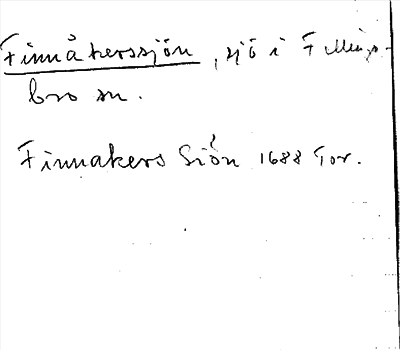 Finnåkerssjön, sjö i Fellings-
bro sn.
Finnakers Siön 1688 Tor.